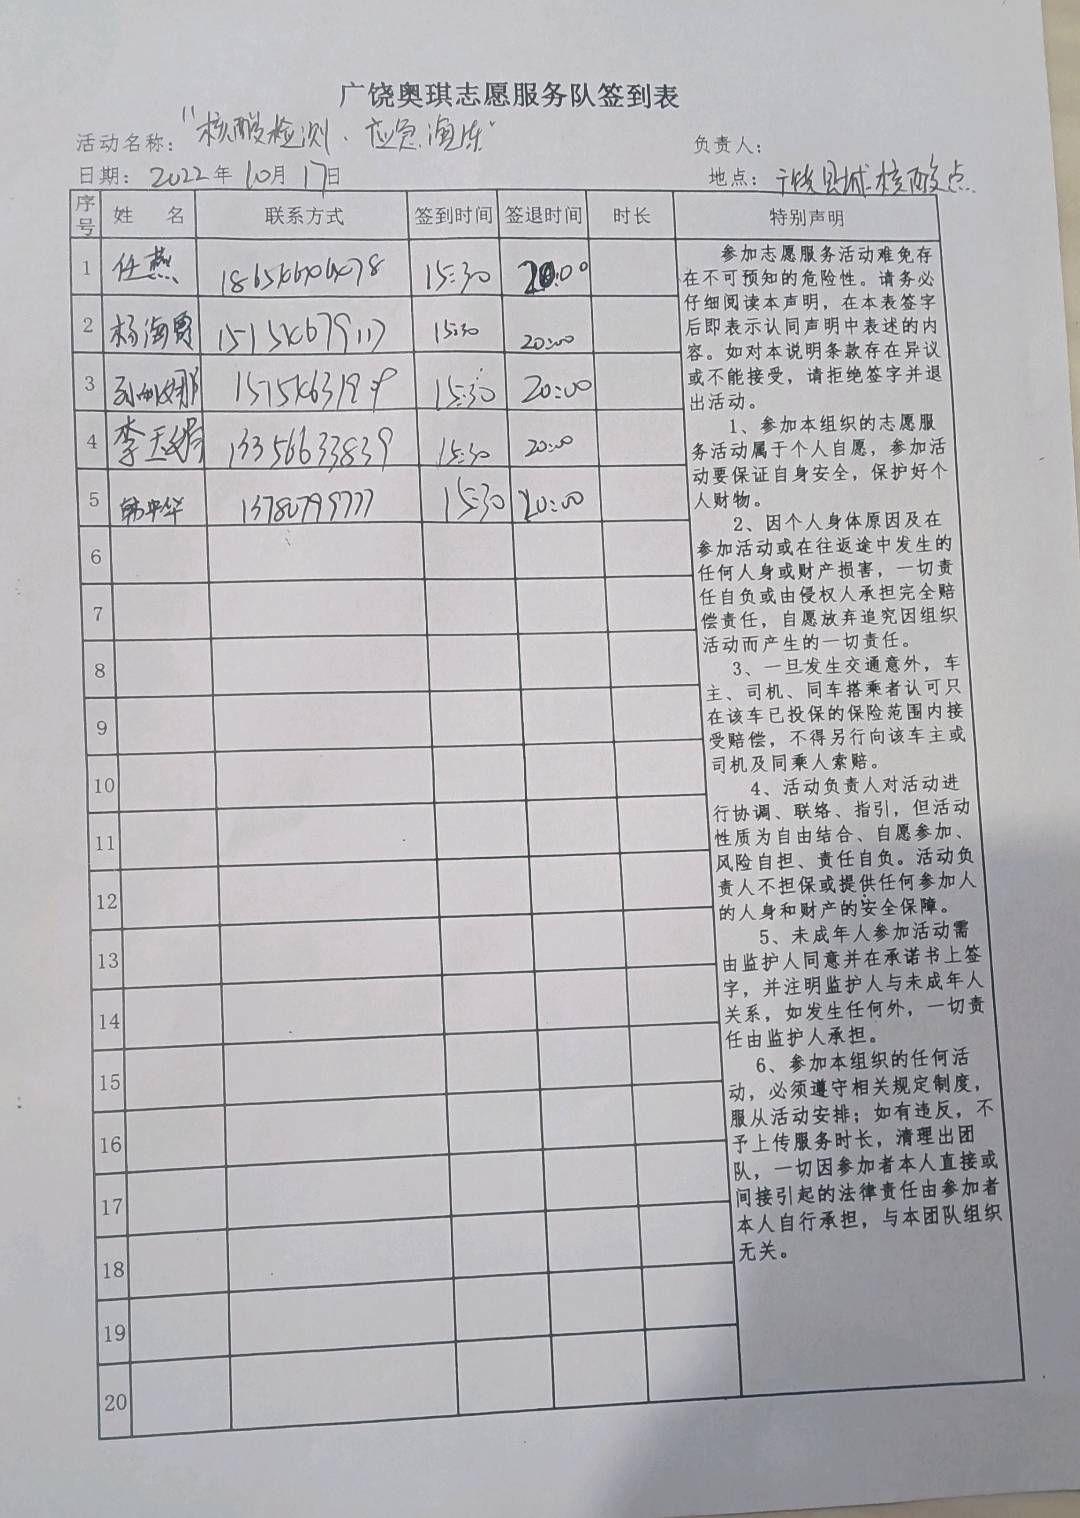 广饶奥琪志愿服务队签到表
活动名称："核酸检测、应急演练"
负责人：
日期：2022年10月17日
地点：广饶县城核酸点
序号 姓 名 联系方式 签到时间 签退时间 时长 特别声明
1 任燕 15:30 20:00
2 杨海勇 15:30 20:00
3 15:30 20:00
4 李玉娟 13356633839 15:30 20:00
5 韩中华 15:30 20:00
6
7
8
9
10
11
12
13
14
15
16
17
18
19
20
参加志愿服务活动难免存
在不可预知的危险性。请务必
仔细阅读本声明，在本表签字
后即表示认同声明中表述的内
容。如对本说明条款存在异议
或不能接受，请拒绝签字并退
出活动。
1、参加本组织的志愿服
务活动属于个人自愿，参加活
动要保证自身安全，保护好个
人财物。
2、因个人身体原因及在
参加活动或在往返途中发生的
任何人身或财产损害，一切责
任自负或由侵权人承担完全赔
偿责任，自愿放弃追究因组织
活动而产生的一切责任。
3、一旦发生交通意外，车
主、司机、同车搭乘者认可只
在该车已投保的保险范围内接
受赔偿，不得另行向该车主或
司机及同乘人索赔。
4、活动负责人对活动进
行协调、联络、指引，但活动
性质为自由结合、自愿参加、
风险自担、责任自负。活动负
责人不担保或提供任何参加人
的人身和财产的安全保障。
5、未成年人参加活动需
由监护人同意并在承诺书上签
字，并注明监护人与未成年人
关系，如发生任何外，一切责
任由监护人承担。
6、参加本组织的任何活
动，必须遵守相关规定制度，
服从活动安排；如有违反，不
予上传服务时长，清理出团
队，一切因参加者本人直接或
间接引起的法律责任由参加者
本人自行承担，与本团队组织
无关。